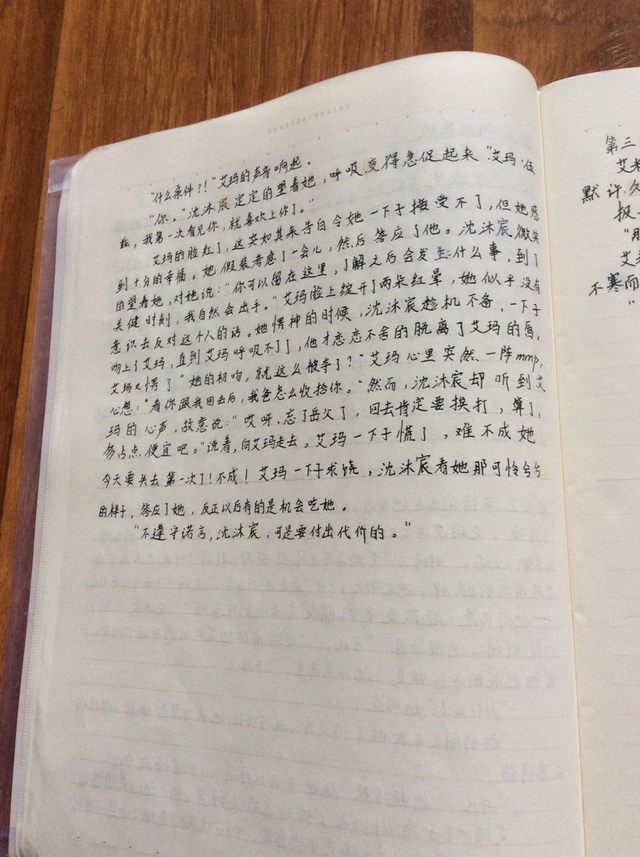 "什么条件?!"艾玛的声音响起。
"你。"沈沐宸定定的望着她,呼吸变得急促起来"艾玛·
我第一次看见你,就喜欢上你了。"
艾玛的脸红了,这突如其来告白令她一下子接受不了,但她感
到十分的幸福。她假装考虑了一会儿,然后答应了他。沈沐宸微笑
的望着她,对她说:"你可以留在这里,了解之后会发生什么事,到了
关键时刻,我自然会出手。"艾玛脸上绽开了两朵红晕,她似乎没有
意识去反对这个人的话。她愣神的时候,沈沐宸趁机不备,一下子
吻上了艾玛,直到艾玛呼吸不了了,他才恋恋不舍的脱离了艾玛的唇,
艾玛又愣了"她的初吻,就这么被夺了?"艾玛心里突然一阵mmp,
心想:"看你跟我回去后,我爸怎么收拾你。"然而,沈沐宸却听到艾
玛的心声,故意说:"哎呀,忘了岳父了,回去肯定要挨打,算了,
多占点便宜吧。"说着,向艾玛走去。艾玛一下子慌了,难不成她
今天要失去第一次了!不成!艾玛一下子求饶,沈沐宸看她那可怜兮兮
的样子,答应了她,反正以后有的是机会吃她。
"不遵守诺言,沈沐宸,可是要付出代价的。"
第三
艾
默许久
报
"那
艾
不寒而
"